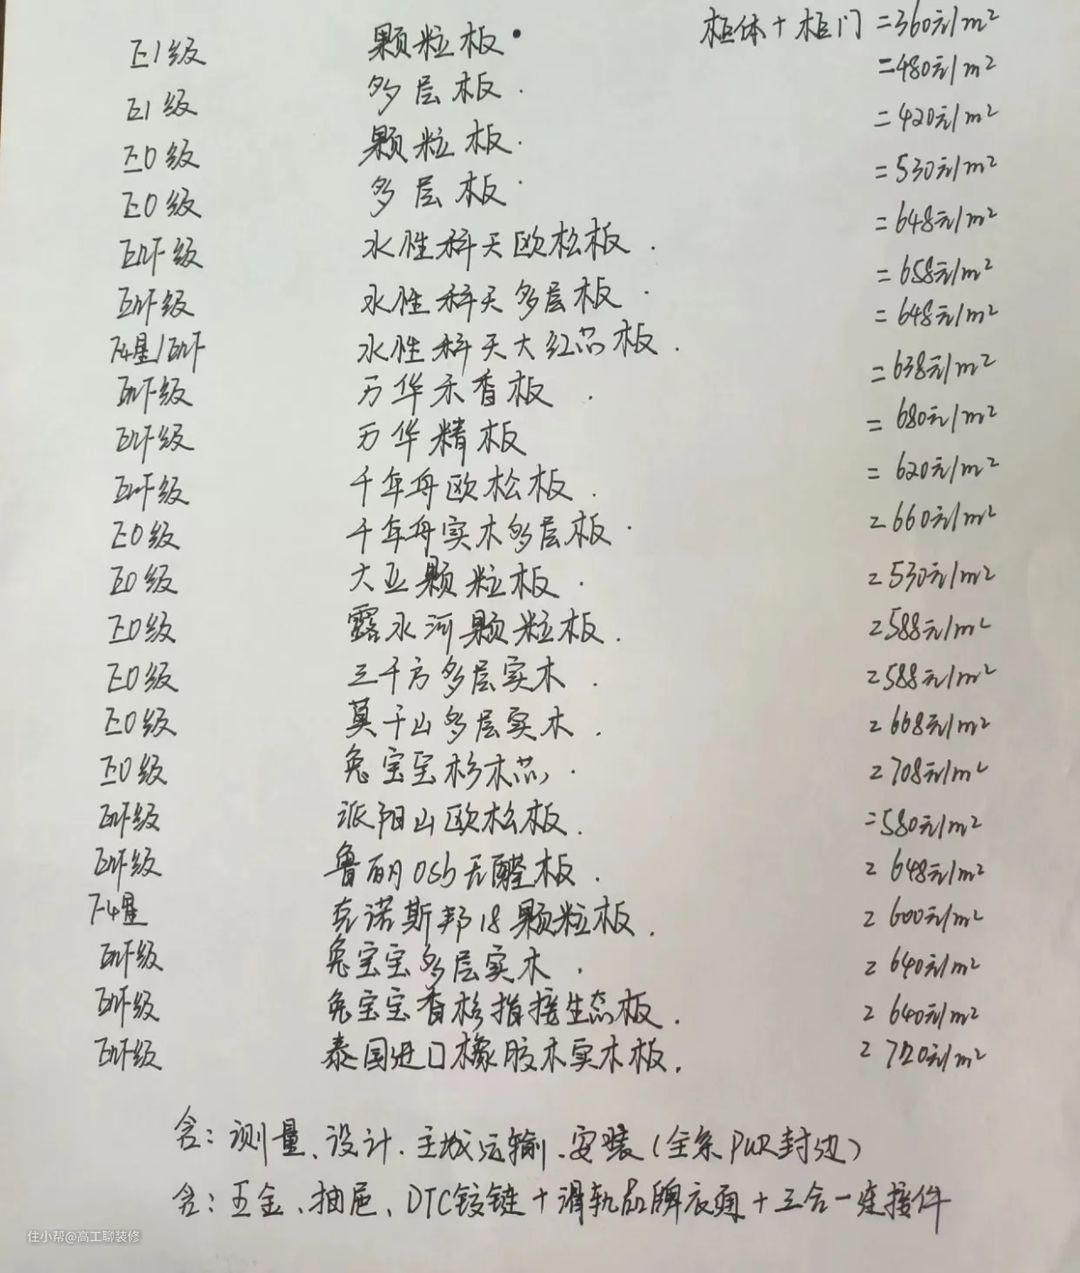 E1级 颗粒板· 柜体+柜门=360元/m²
E1级 多层板. =480元/m²
E0级 颗粒板. =420元/m²
E0级 多层板. =530元/m²
ENF级 水性科天欧松板. =648元/m²
ENF级 水性科天多层板. =658元/m²
F4星/ENF 水性科天大红芯板. =648元/m²
ENF级 万华禾香板. =638元/m²
ENF级 万华精板 =680元/m²
ENF级 千年舟欧松板. =620元/m²
E0级 千年舟实木多层板. =660元/m²
E0级 大亚颗粒板. =530元/m²
E0级 露水河颗粒板. =588元/m²
E0级 三千方多层实木. =588元/m²
E0级 莫干山多层实木. =668元/m²
E0级 兔宝宝杉木芯. =708元/m²
ENF级 派阳山欧松板. =580元/m²
ENF级 鲁丽osb无醛板. =648元/m²
F4星 克诺斯邦18颗粒板. =600元/m²
ENF级 兔宝宝多层实木. =640元/m²
ENF级 兔宝宝香杉指接生态板. =640元/m²
ENF级 泰国进口橡胶木实木板. =720元/m²
含:测量、设计.主城运输.安装(全系PUR封边)
含:五金、抽屉、DTC铰链+滑轨品牌衣通+三合一连接件
住小帮@高工聊装修